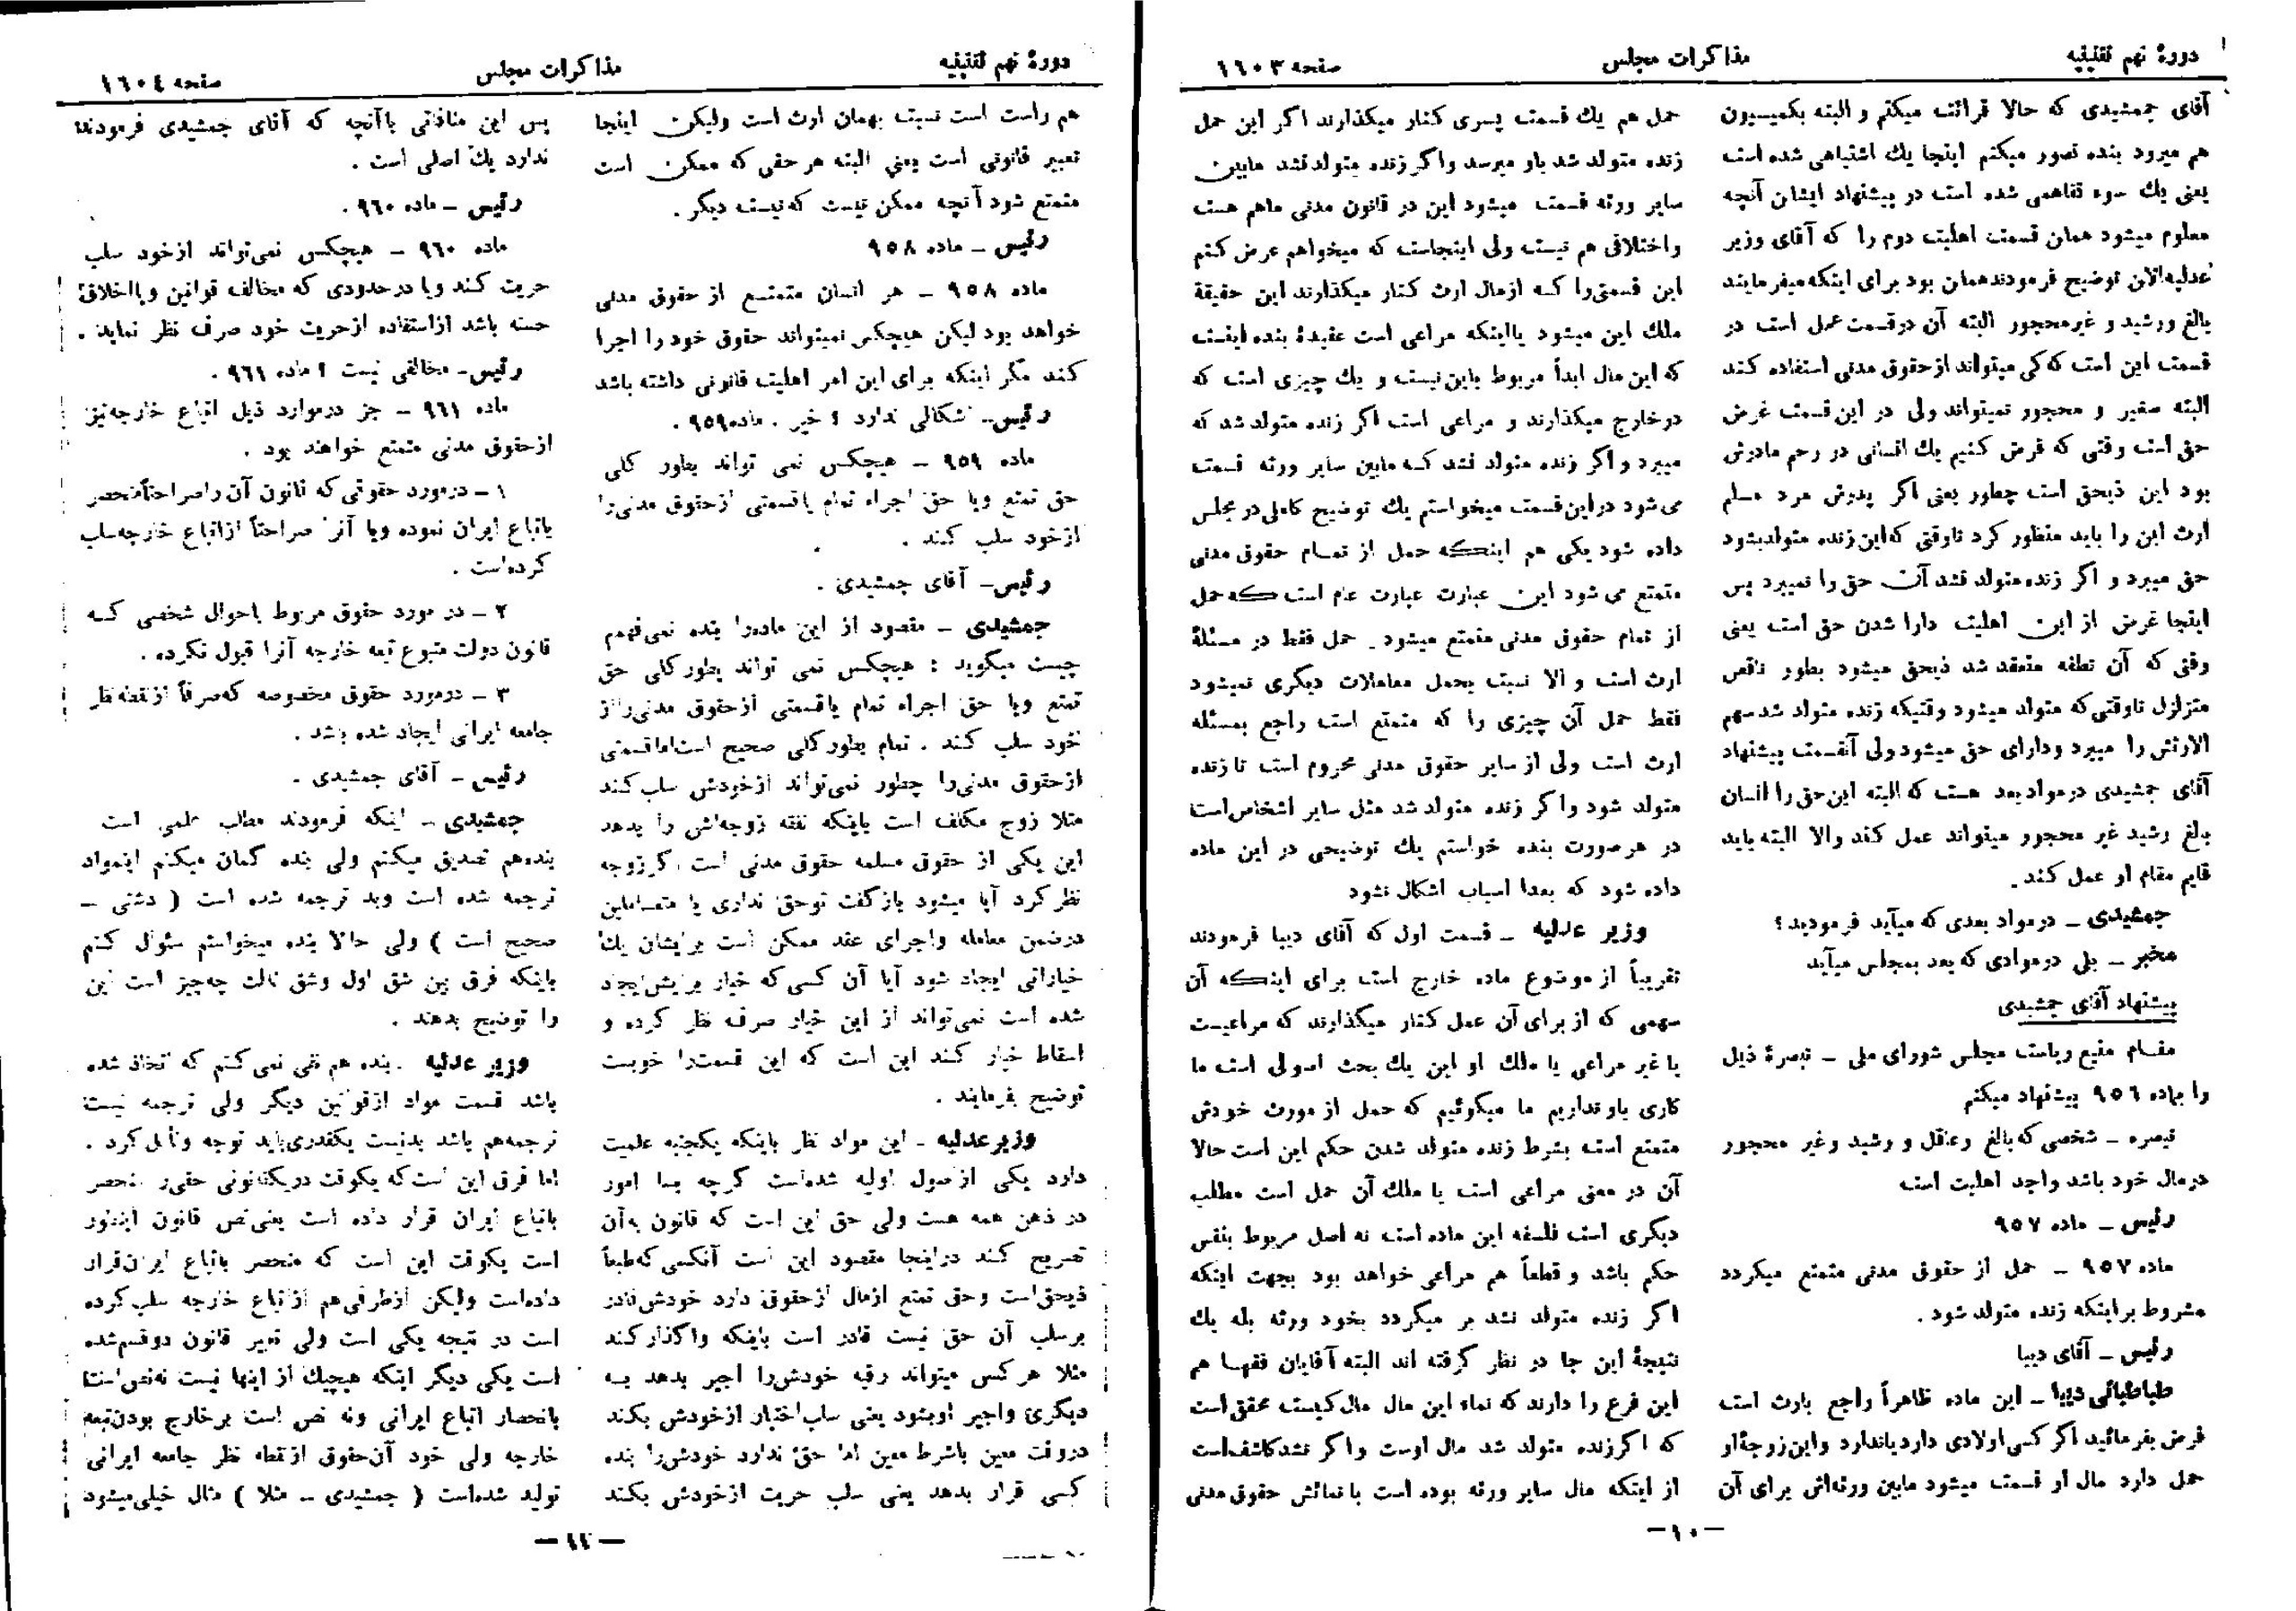 دورهٔ نهم تقنینیه
مذاکرات مجلس
صفحه ۱۶۰۳
آقای جمشیدی که حالا قرائت میکنم و البته بکمیسیون
هم میرود بنده تصور میکنم اینجا یك اشتباهی شده است
یعنی یك سوء تفاهمی شده است در پیشنهاد ایشان آنچه
معلوم میشود همان قسمت اهلیت دوم را که آقای وزیر
عدلیه الان توضیح فرمودند همان بود برای اینکه میفرمایند
بالغ و رشید و غیر محجور البته آن در قسمت عمل است در
قسمت این است که کی میتواند از حقوق مدنی استفاده کند
البته صغیر و محجور نمیتواند ولی در این قسمت غرض
حق است وقتی که فرض کنیم یك انسانی در رحم مادرش
بود این ذیحق است چطور یعنی اگر پدرش مرد مسلم
ارث این را باید منظور کرد تا وقتی که این زنده متولد بشود
حق میبرد و اگر زنده متولد نشد آن حق را نمیبرد پس
اینجا غرض از این اهلیت دارا شدن حق است یعنی
وقتی که آن نطفه منعقد شد ذیحق میشود بطور ناقص
متزلزل تا وقتی که متولد میشود وقتیکه زنده متولد شد سهم
الارثش را میبرد و دارای حق میشود ولی آنقسمت پیشنهاد
آقای جمشیدی در مواد بعد هست که البته این حق را انسان
بالغ رشید غیر محجور میتواند عمل کند والا البته باید
قایم مقام او عمل کند.
جمشیدی ــ در مواد بعدی که میآید فرمودید؟
مخبر ــ بلی در موادی که بعد بمجلس میآید
پیشنهاد آقای جمشیدی
مقام منیع ریاست مجلس شورای ملی ــ تبصرهٔ ذیل
را بماده ۹۵۶ پیشنهاد میکنم
تبصره ــ شخصی که بالغ و عاقل و رشید و غیر محجور
در مال خود باشد واجد اهلیت است
رئیس ــ ماده ۹۵۷
ماده ۹۵۷ ــ حمل از حقوق مدنی متمتع میگردد
مشروط بر اینکه زنده متولد شود.
رئیس ــ آقای دیبا
طباطبائی دیبا ــ این ماده ظاهراً راجع بارث است
فرض بفرمائید اگر کسی اولادی دارد یا ندارد و این زوجهٔ او
حمل دارد مال او قسمت میشود مابین ورثه‌اش برای آن
حمل هم یك قسمت پسری کنار میگذارند اگر این حمل
زنده متولد شد باو میرسد و اگر زنده متولد نشد مابین
سایر ورثه قسمت میشود این در قانون مدنی ماهم هست
و اختلافی هم نیست ولی اینجاست که میخواهم عرض کنم
این قسمتی را که از مال ارث کنار میگذارند این حقیقة
ملك این میشود یا اینکه مراعی است عقیدهٔ بنده اینست
که این مال ابداً مربوط باین نیست و یك چیزی است که
در خارج میگذارند و مراعی است اگر زنده متولد شد که
میبرد و اگر زنده متولد نشد که مابین سایر ورثه قسمت
می شود در این قسمت میخواستم یك توضیح کاملی در مجلس
داده شود یکی هم اینکه حمل از تمام حقوق مدنی
متمتع می شود این عبارت عبارت عام است که حمل
از تمام حقوق مدنی متمتع میشود. حمل فقط در مسئلهٔ
ارث است و الا نسبت بحمل معاملات دیگری نمیشود
فقط حمل آن چیزی را که متمتع است راجع بمسئله
ارث است ولی از سایر حقوق مدنی محروم است تا زنده
متولد شود و اگر زنده متولد شد مثل سایر اشخاص است
در هر صورت بنده خواستم یك توضیحی در این ماده
داده شود که بعدا اسباب اشکال نشود
وزیر عدلیه ــ قسمت اول که آقای دیبا فرمودند
تقریباً از موضوع ماده خارج است برای اینکه آن
سهمی که از برای آن عمل کنار میگذارند که مراعیست
یا غیر مراعی یا ملك او این یك بحث اصولی است ما
کاری باو نداریم ما میگوئیم که حمل از مورث خودش
متمتع است بشرط زنده متولد شدن حکم این است حالا
آن در معنی مراعی است یا ملك آن حمل است مطلب
دیگری است فلسفه این ماده است نه اصل مربوط بنفس
حکم باشد و قطعاً هم مراعی خواهد بود بجهت اینکه
اگر زنده متولد نشد بر میگردد بخود ورثه بله یك
نتیجهٔ این جا در نظر گرفته اند البته آقایان فقها هم
این فرع را دارند که نماء این مال مال کیست محقق است
که اگر زنده متولد شد مال اوست و اگر نشد کاشف است
از اینکه مال سایر ورثه بوده است با نمائش حقوق مدنی
ــ ۱۰ ــ
دورهٔ نهم تقنینیه
مذاکرات مجلس
صفحه ۱۶۰٤
هم راست است نسبت بهمان ارث است ولیکن اینجا
تعبیر قانونی است یعنی البته هر حقی که ممکن است
متمتع شود آنچه ممکن نیست که نیست دیگر.
رئیس ــ ماده ۹۵۸
ماده ۹۵۸ ــ هر انسان متمتع از حقوق مدنی
خواهد بود لیکن هیچکس نمیتواند حقوق خود را اجرا
کند مگر اینکه برای این امر اهلیت قانونی داشته باشد
رئیس ــ اشکالی ندارد ؟ خیر. ماده ۹۵۹.
ماده ۹۵۹ ــ هیچکس نمی تواند بطور کلی
حق تمتع و یا حق اجراء تمام یا قسمتی از حقوق مدنی را
از خود سلب کند.
رئیس ــ آقای جمشیدی.
جمشیدی ــ مقصود از این ماده را بنده نمی فهمم
چیست میگوید: هیچکس نمی تواند بطور کلی حق
تمتع و یا حق اجراء تمام یا قسمتی از حقوق مدنی را از
خود سلب کند. تمام بطور کلی صحیح است اما قسمتی
از حقوق مدنی را چطور نمی تواند از خودش سلب کند
مثلا زوج مکلف است باینکه نفقه زوجه‌اش را بدهد
این یکی از حقوق مسلمه حقوق مدنی است اگر زوجه
نظر کرد آیا میشود باز گفت تو حق نداری یا متعاملین
در ضمن معامله و اجرای عقد ممکن است برایشان یك
خیاراتی ایجاد شود آیا آن کسی که خیار برایش ایجاد
شده است نمی تواند از این خیار صرف نظر کرده و
اسقاط خیار کند این است که این قسمت را خوبست
توضیح بفرمایند.
وزیر عدلیه ــ این مواد نظر باینکه یکجنبه علمیت
دارد یکی از اصول اولیه شده‌است گرچه بسا امور
در ذهن همه هست ولی حق این است که قانون به آن
تصریح کند در اینجا مقصود این است آنکسی که طبعاً
ذیحق است و حق تمتع از مال از حقوق دارد خودش قادر
بر سلب آن حق نیست قادر است باینکه واگذار کند
مثلا هر کس میتواند رقبه خودش را اجیر بدهد به
دیگری و اجیر او بشود یعنی سلب اختیار از خودش بکند
در وقت معین با شرط معین اما حق ندارد خودش را بنده
کسی قرار بدهد یعنی سلب حریت از خودش بکند
پس این منافاتی با آنچه که آقای جمشیدی فرمودند
ندارد یك اصلی است.
رئیس ــ ماده ۹۶۰.
ماده ۹۶۰ ــ هیچکس نمی تواند از خود سلب
حریت کند و یا در حدودی که مخالف قوانین و یا اخلاق
حسنه باشد از استفاده از حریت خود صرف نظر نماید.
رئیس ــ مخالفی نیست ؟ ماده ۹۶۱.
ماده ۹۶۱ ــ جز در موارد ذیل اتباع خارجه نیز
از حقوق مدنی متمتع خواهند بود.
۱ ــ در مورد حقوقی که قانون آن را صراحتاً منحصر
باتباع ایران نموده و یا آنرا صراحتاً از اتباع خارجه سلب
کرده است.
۲ ــ در مورد حقوق مربوط باحوال شخصی که
قانون دولت متبوع تبعه خارجه آنرا قبول نکرده.
۳ ــ در مورد حقوق مخصوصه که صرفاً از نقطه نظر
جامعه ایرانی ایجاد شده باشد.
رئیس ــ آقای جمشیدی.
جمشیدی ــ اینکه فرمودند مطالب علمی است
بنده هم تصدیق میکنم ولی بنده گمان میکنم این مواد
ترجمه شده است و بد ترجمه شده است ( دشتی ــ
صحیح است ) ولی حالا بنده میخواستم سئوال کنم
باینکه فرق بین شق اول و شق ثالث چه چیز است این
را توضیح بدهند.
وزیر عدلیه ــ بنده هم نفی نمی کنم که اتخاذ شده
باشد قسمت مواد از قوانین دیگر ولی ترجمه نیست
ترجمه هم باشد بد نیست یکقدری باید توجه و تأمل کرد.
اما فرق این است که یکوقت در یك قانونی حقی را منحصر
باتباع ایران قرار داده است یعنی نص قانون اینطور
است یکوقت این است که منحصر باتباع ایران قرار
داده است ولیکن از طرفی هم از اتباع خارجه سلب کرده
است در نتیجه یکی است ولی تعبیر قانون دو قسم شده
است یکی دیگر اینکه هیچیك از اینها نیست نه نص است
بانحصار اتباع ایرانی و نه نص است بر خارج بودن تبعه
خارجه ولی خود آن حقوق از نقطه نظر جامعه ایرانی
تولید شده است ( جمشیدی ــ مثلا ) مثال خیلی میشود
ــ ۱۱ ــ